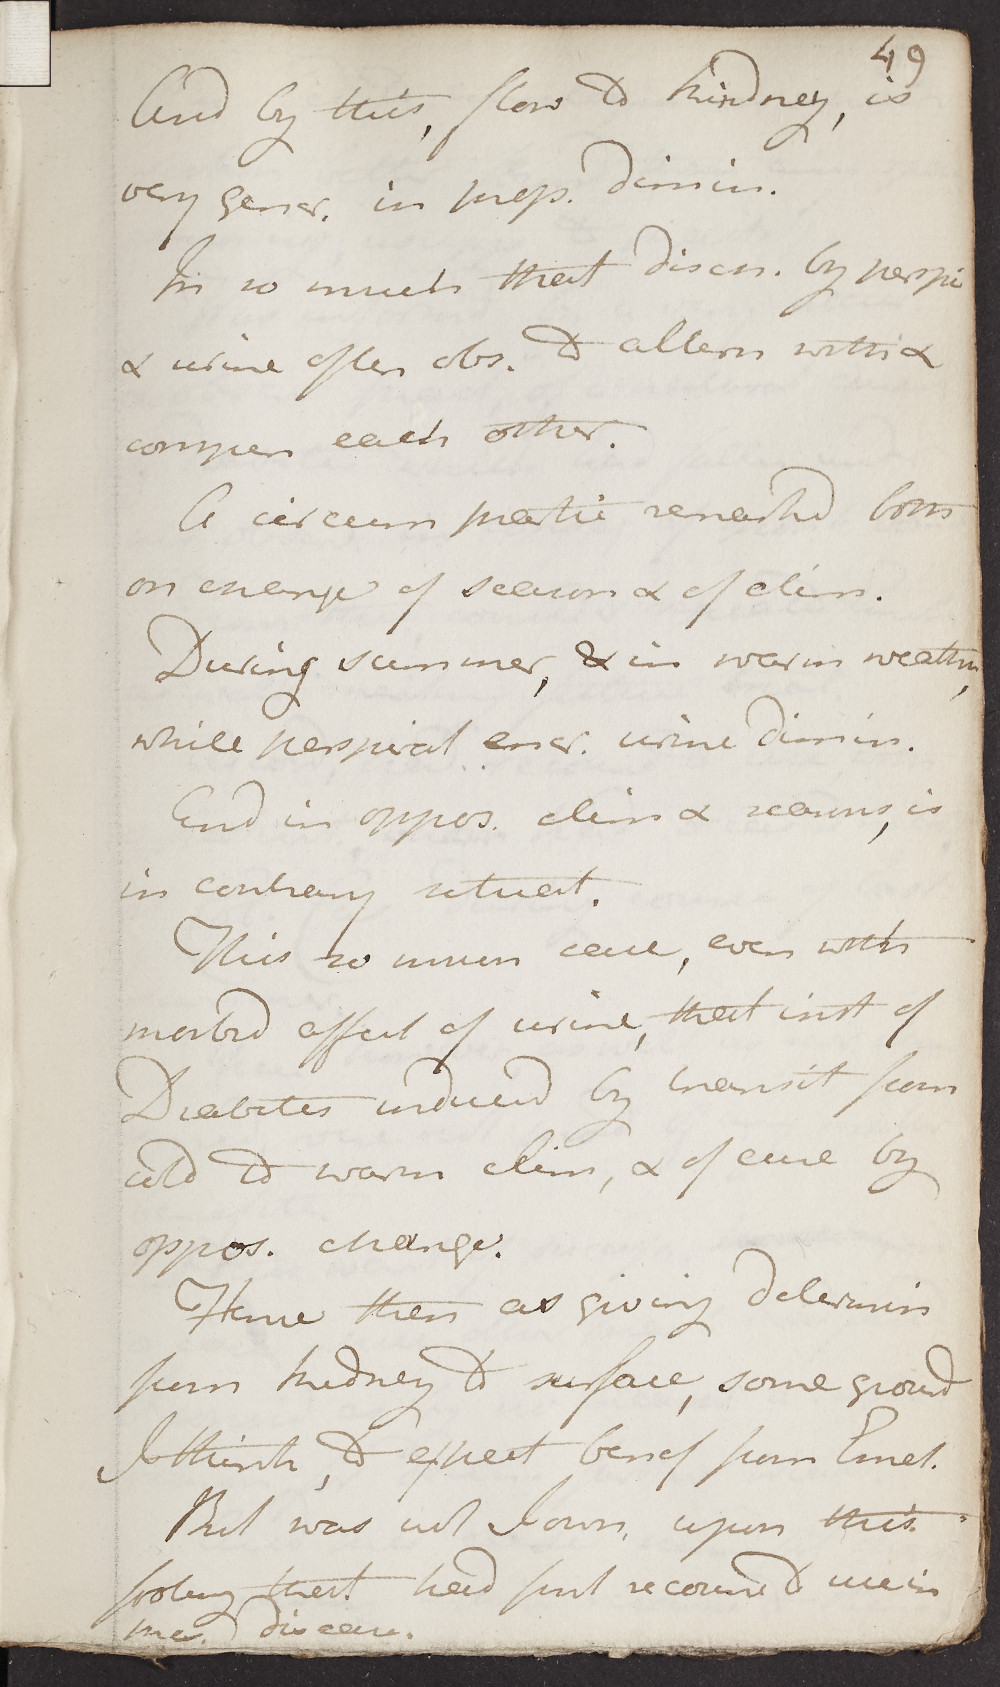 49
And by this, flow to kindney, is
very gener. in prop. dimin.
In so much that disch. by perspi
& urine often obs. to altern with &
compen each other.
A circum partic remarkd both
on change of season & of clim.
During summer, & in warm weather,
while perspirat encr. urine dimin.
And in oppos. clim & seasons, is
in contrary situat.
This so much case, even with
morbid affect of urine, that inst of
Diabetes induced by transit from
cold to warm clim, & of cure by
oppos. change.
Hence then as giving determin
from kidney to surface, some ground
I think, to expect benef from Emet.
But was not I own, upon this
footing that had first recourse to use in
disease.